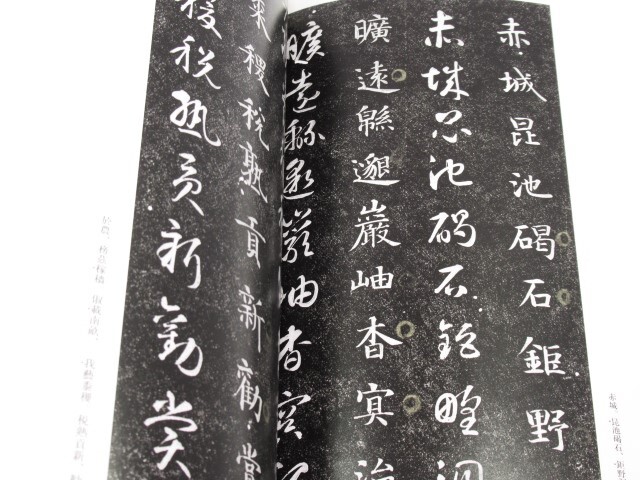 赤城、昆池碣石、鉅野
赤城昆池碣石鉅野
赤城昆池碣石鉅野洞
曠遠緜邈巖岫杳冥治
曠遠緜邈巖岫杳冥治
黍稷稅熟貢新勸賞
稷稅熟貢新勸賞
於農、務茲稼穡 俶載南畝、 我藝黍稷、稅熟貢新、